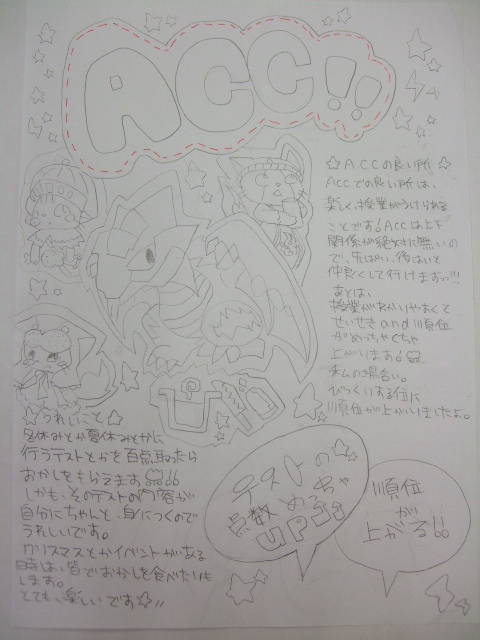 ACC!!
☆ACCの良い所☆
ACCでの良い所は、
楽しく、授業がうけられる
ことです!ACCは上下
関係が絶対に無いの
で、先ぱい、後はいと
仲良くして行けますっ!!!
あとは、
授業がわかりやすくて
せいせきand順位
がめっちゃくちゃ
上がります!
私の場合い。
びっくりする位に
順位が上がりましたよ。
☆うれしいこと☆
冬休みとか夏休みとかに
行うテストとかを百点取ったら
おかしをもらえます!!
しかも、そのテストの内容が
自分にちゃんと、身につくので
うれしいです。
クリスマスとかイベントがある
時は、皆でおかしを食べたりも
します。
とても、楽しいです☆!!
テストの
点数めっちゃ
UP
順位
が
上がる!!